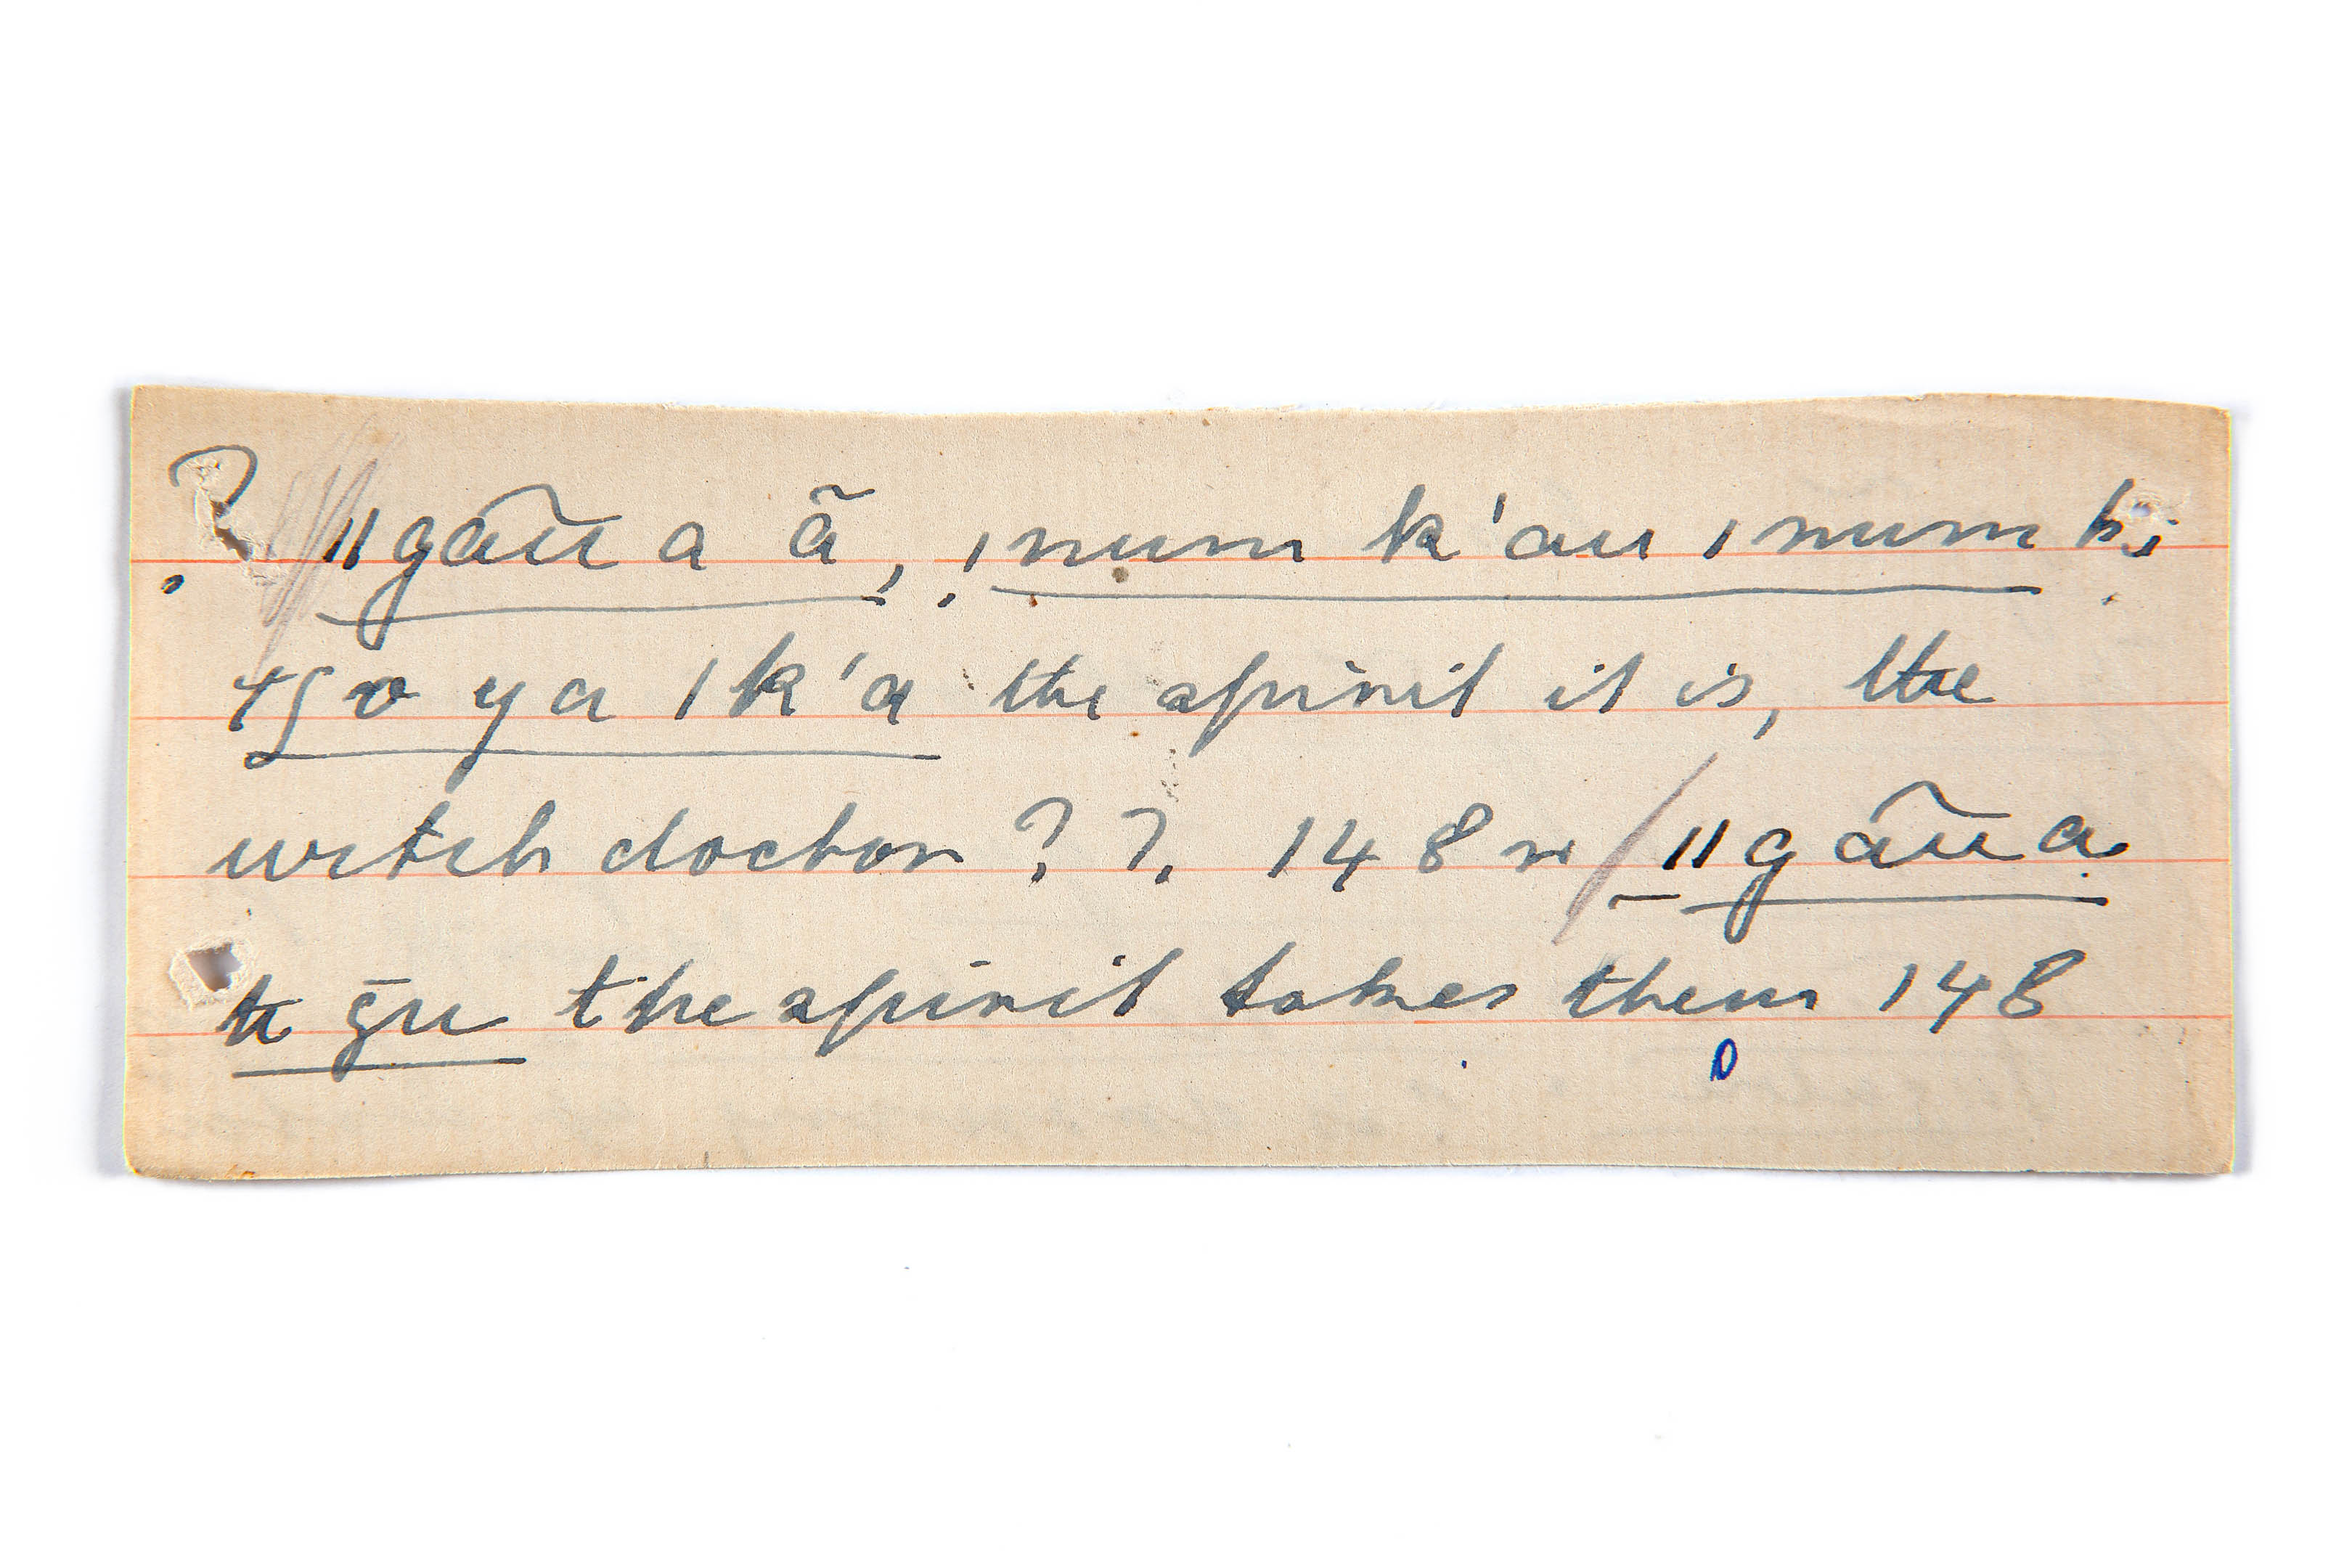 ? ǁgãũ a ã, ǀnum k'au ǀnum
ya ǀk'a the spirit it is, the
witch doctor ??. 148 r / ǁgãũ a
ti ḡu the spirit takes them 148